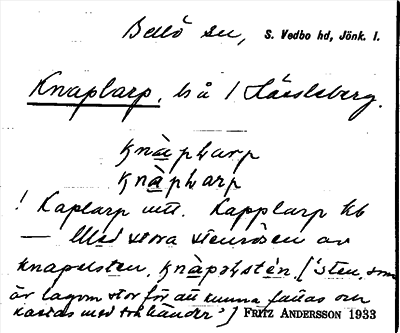 Bellö sn, S. Vedbo hd, Jönk. l.
Knaplarp, by å / Härstberg.
knàpḷarp
knàpḷarp
! Kaplarp utt. Kapplarp kb
— Med stora stenrösen av
knapelsten, knàpəlstén, [‘sten, som
är lagom stor för att kunna fattas och
kastas med två händer’] FRITZ ANDERSSON 1933